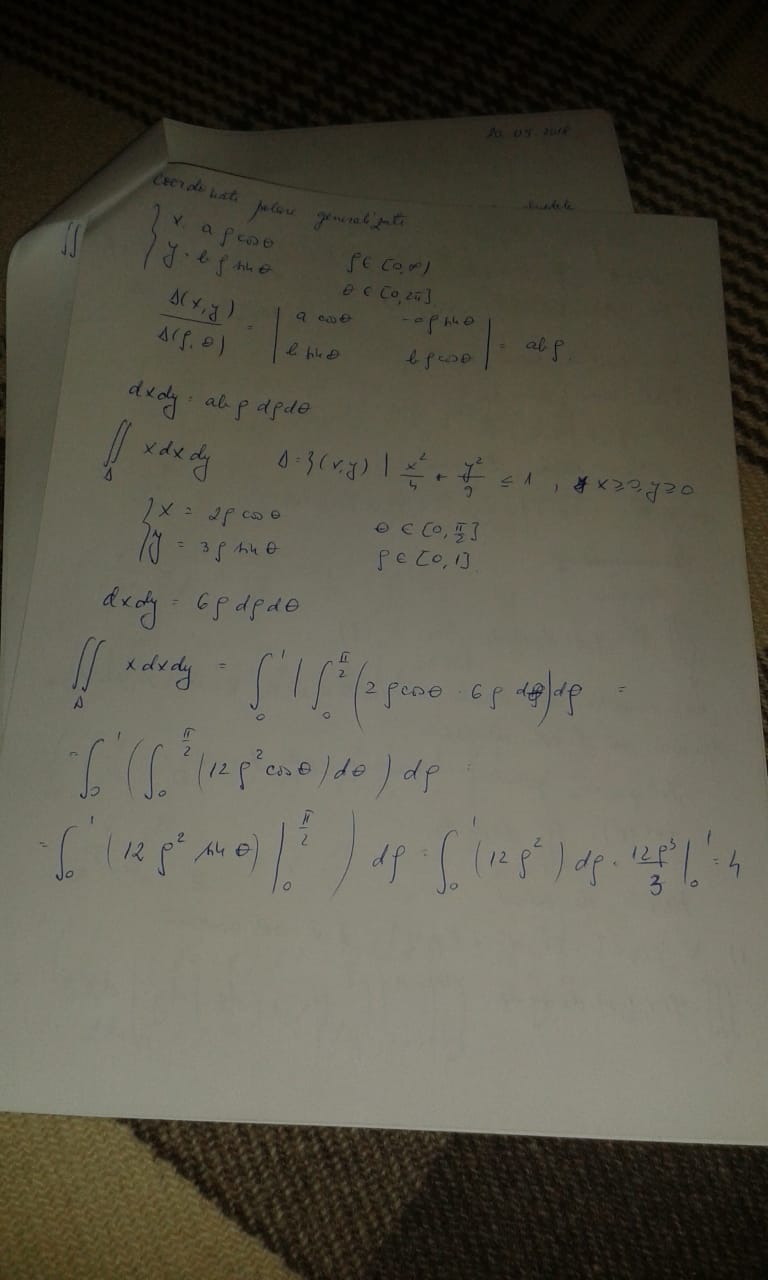 20.03.2018
Coordonate polare generalizate
∬
{ x = a ρ cos θ
y = b ρ sin θ ρ ∈ [0,∞)
θ ∈ [0,2π]
Δ(x,y) / Δ(ρ,θ) = | a cos θ -aρ sin θ
b sin θ bρ cos θ | = abρ.
dxdy = abρ dρdθ
∬_Δ x dx dy Δ = {(x,y) | x²/4 + y²/9 ≤ 1, x ≥ 0, y ≥ 0
{ x = 2ρ cos θ θ ∈ [0, π/2]
y = 3ρ sin θ ρ ∈ [0,1].
dxdy = 6ρ dρ dθ
∬_Δ x dx dy = ∫_0^1 ( ∫_0^{π/2} (2ρ cos θ · 6ρ dθ) dρ =
= ∫_0^1 ( ∫_0^{π/2} (12ρ² cos θ) dθ ) dρ =
= ∫_0^1 (12ρ² sin θ) |_0^{π/2} ) dρ = ∫_0^1 (12ρ²) dρ = 12ρ³/3 |_0^1 = 4